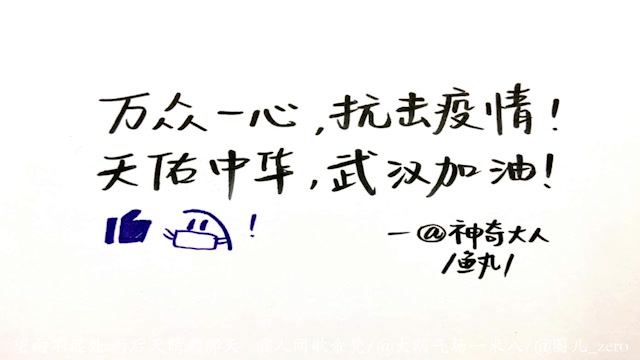 万众一心,抗击疫情!
天佑中华,武汉加油!
!
—@神奇大人
/鱼丸/